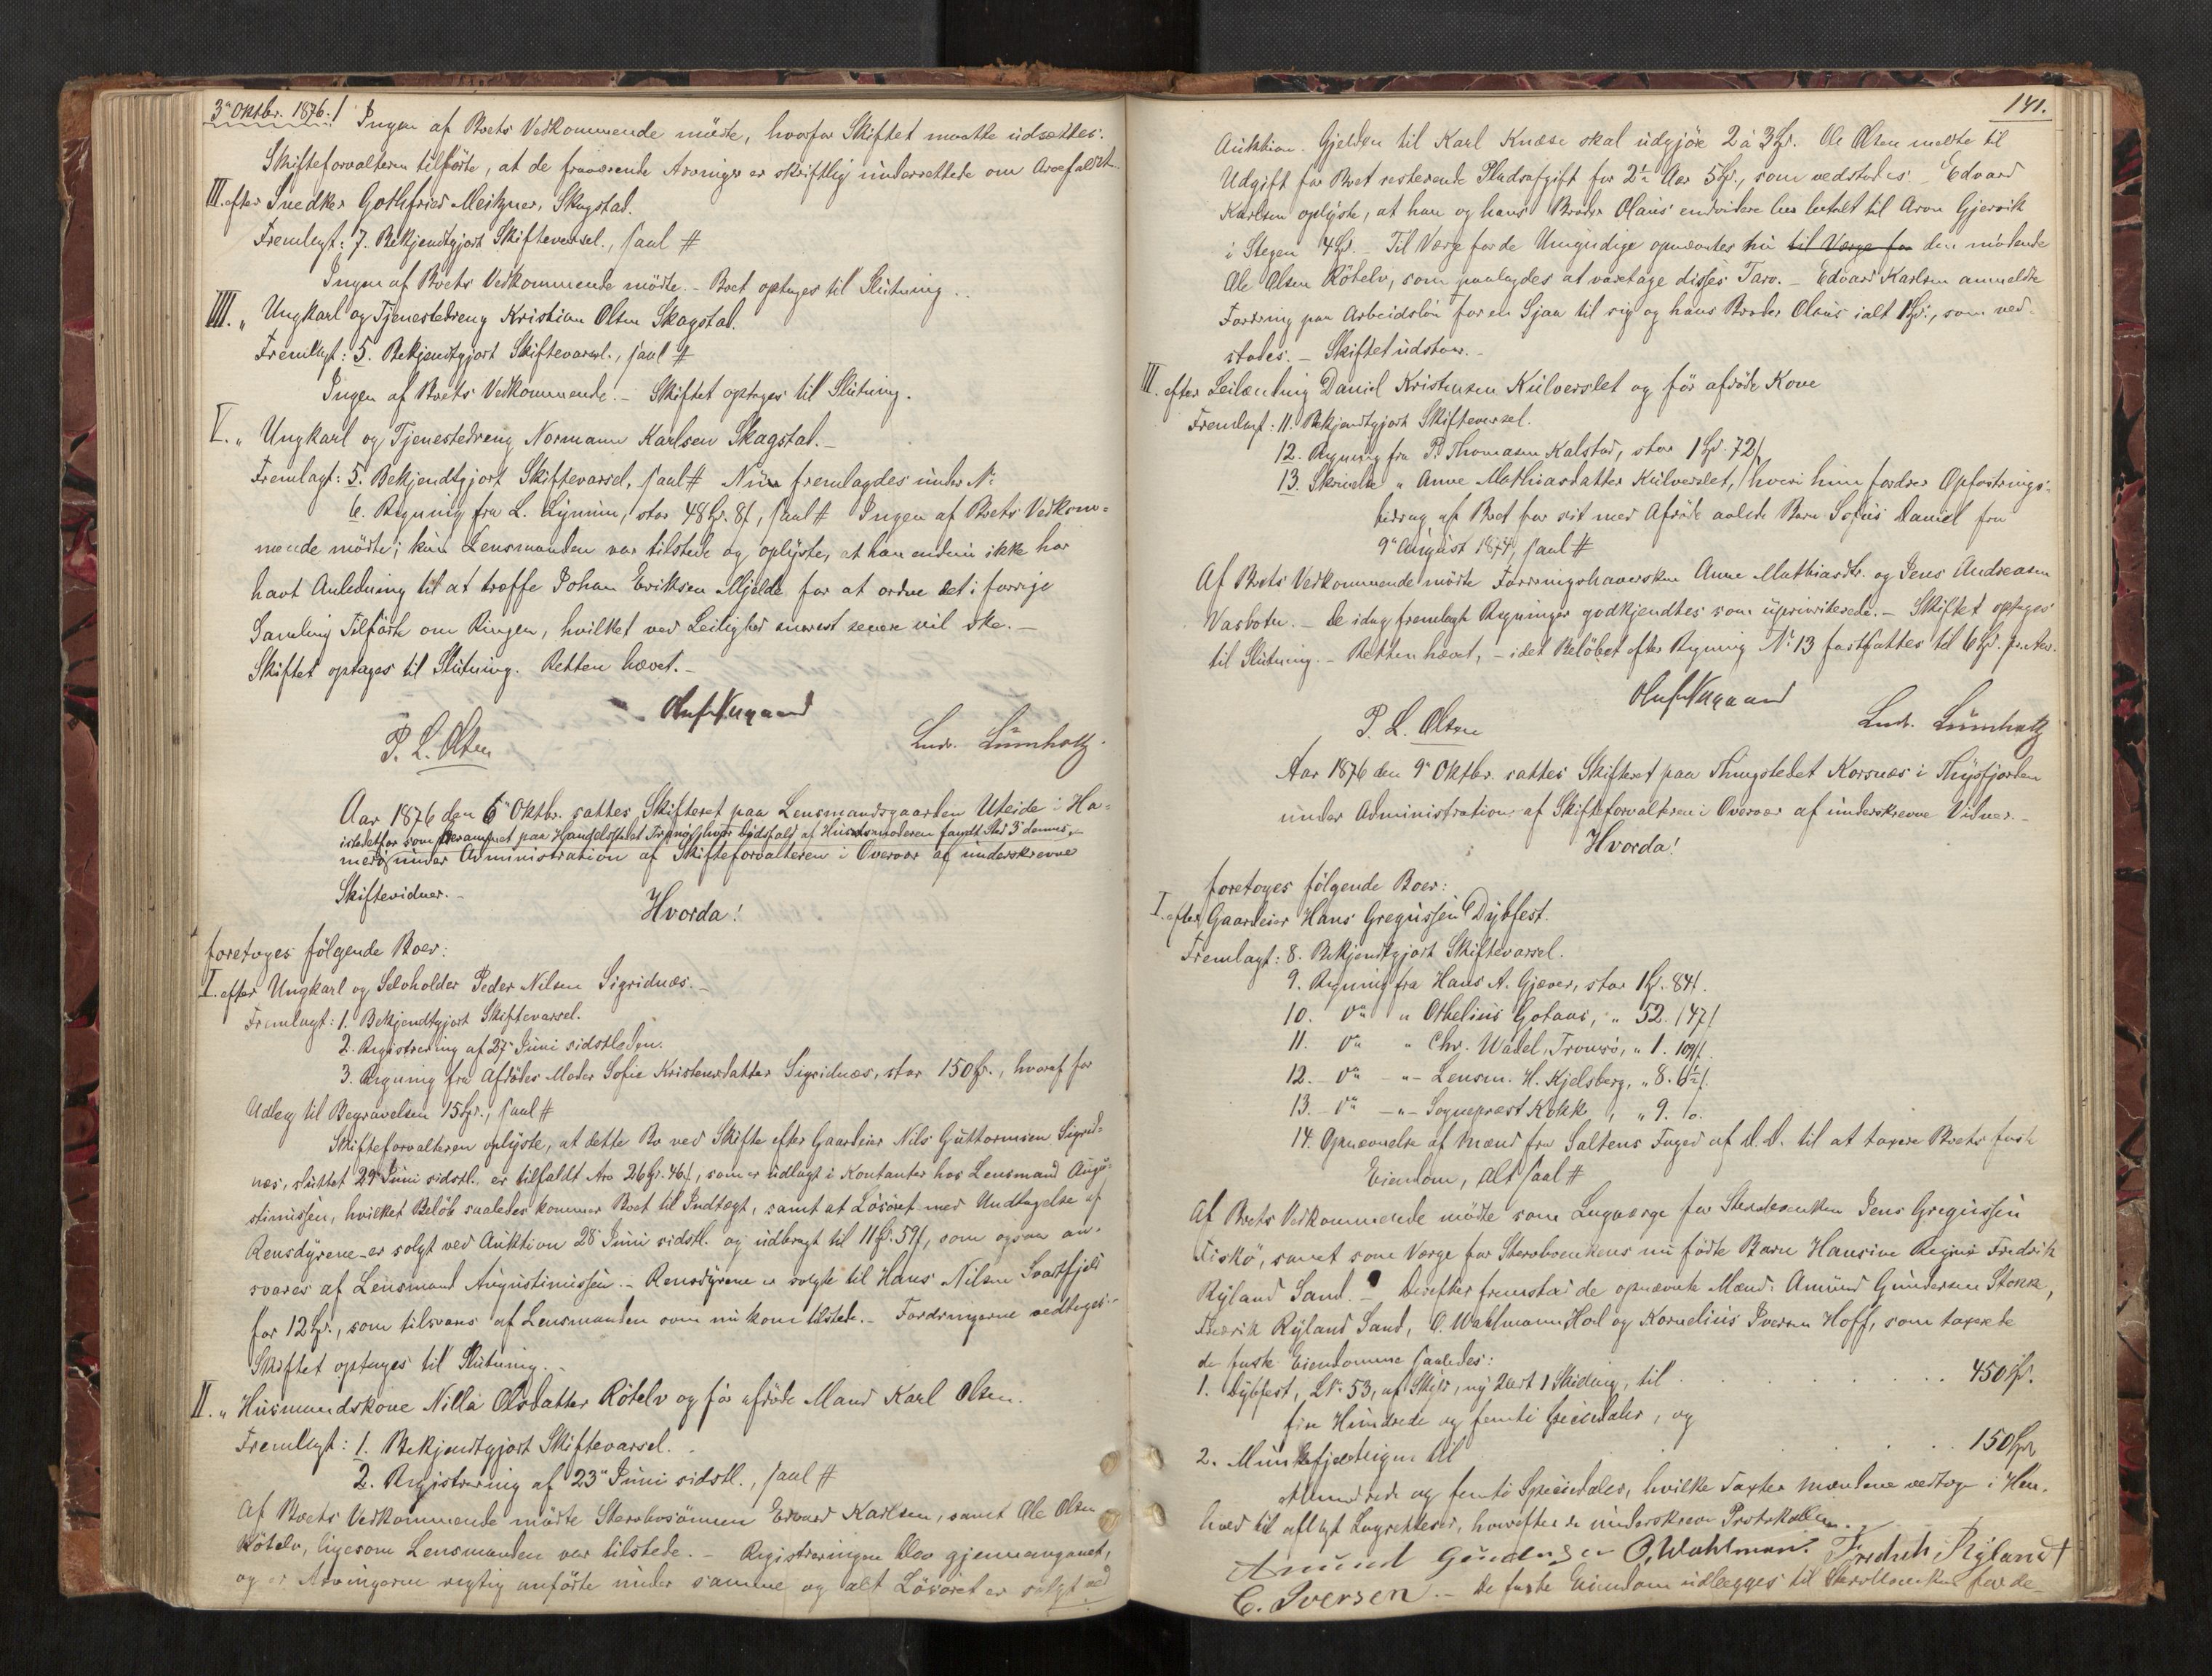 3' Oktbr. 1876.! Ingen af Boets Vedkommende mødte, hvorfor Skiftet maatte udsættes.
Skifteforvalteren tilførte, at de fraværende Arvinger er skriftlig underrettede om Arvefaldet.
III. efter Snedker Gothfried Meitzner, Skagstad.
Fremlagt: 7. Bekjendtgjort Skiftevarsel., saal #
Ingen af Boets Vedkommende mödte. - Boet optages til Slutning.
IIII. " Ungkarl og Tjenestedreng Kristian Olsen Skagstad.
Fremlagt: 5. Bekjendtgjort Skiftevarsel., saal #
Ingen af Boets Vedkommende. - Skiftet optages til Slutning.
V. " Ungkarl og Tjenestedreng Normann Karlsen Skagstad. -
Fremlagt: 5. Bekjendtgjort Skiftevarsel, saal # Nu fremlagdes under No
6. Regning fra L. Lynum, stor 48 Sp. 8 s, saal # Ingen af Boets Vedkom-
mende mödte; kun Lensmanden var tilstede og oplyste, at han endnu ikke har
havt Anledning til at træffe Johan Eriksen Mjelde for at ordne det i forrige
Samling Tilförte om Ringen, hvilket ved Leilighed snarest senere vil ske. -
Skiftet optages til Slutning. Retten hævet. -
P. L. Olsen
Ludv. Lumholtz.
Aar 1876 den 6' Oktbr. sattes Skifteret paa Lensmandsgaarden Uteide i Ha-
istedetfor som berammet paa Handelsstedet hvor Dödsfald af Husets fandt Sted 3' dennes,
merö under Administration af Skifteforvalteren i Overvær af underskrevne
Skiftevidner. -
Hvorda!
foretoges fölgende Boer:
I. efter Ungkarl og Selvholder Peder Nilsen Sigridnæs. -
Fremlagt: 1. Bekjendtgjort Skiftevarsel.
2. Registrering af 27' Juni sidstleden.
3. Regning fra Afdödes Moder Sofie Kristensdatter Sigridnæs, stor 150 Sp., hvoraf for
Udlæg til Begravelsen 15 Sp., saal #
Skifteforvalteren oplyste, at dette Bo ved Skifte efter Gaardeier Nils Guttormsen Sigrid-
næs, sluttet 29' Juni sidstl. er tilfaldt Arv 26 Sp. 46 s, som er udlagt i Kontanter hos Lensmand Augu-
stinussen, hvilket Belöb saaledes kommer Boet til Indtægt, samt at Lösöret med Undtagelse af
Rensdyrene er solgt ved Auktion 28' Juni sidstl. og udbragt til 11 Sp. 59 s, som ogsaa an-
svares af Lensmand Augustinussen. - Rensdyrene er solgte til Hans Nilsen Svartfjeld
for 12 Sp., som tilsvares af Lensmanden som nu kom tilstede. - Fordringerne vedtoges. -
Skiftet optages til Slutning. -
II. " Husmandskone Nilla Olsdatter Rötelv og för afdöde Mand Karl Olsen.
Fremlagt: 1. Bekjendtgjort Skiftevarsel.
2. Registrering af 23' Juni sidstl., saal #
Af Boets Vedkommende mödte Stervbosönnen Edvard Karlsen, samt Ole Olsen
Rötelv, ligesom Lensmanden var tilstede. - Registreringen blev gjennemgaaet,
og er Arvingerne rigtig anförte under samme og alt Lösöret er solgt ved
141.
Auktion. Gjelden til Karl Knæse skal udgjöre 2 à 3 Sp. Ole Olsen meldte til
Udgift for Boet resterende Pladsafgift for 2½ Aar 5 Sp., som vedstodes. Edvard
Karlsen oplyste, at han og hans Broder Olaus endvidere har betalt til Aron Gjervik
i Stegen 4 Sp. - Til Værge for de Umyndige opnævntes nu til Værge for den mödende
Ole Olsen Rötelv, som paalagdes at varetage disses Tarv. - Edvard Karlsen anmeldte
Fordring paa Arbeidslön for en Sjaa til sig og hans Broder Olaus ialt 1 Sp., som ved-
stodes. - Skiftet udstaar. -
III. efter Leilænding Daniel Kristensen Kulverslet og för afdöde Kone
Fremlagt: 11. Bekjendtgjort Skiftevarsel.
12. Regning fra P. Thomasen Kalstad, stor 1 Sp. 72 s.
13. Skrivelse " Anne Mathiasdatter Kulverslet, hvori hun fordrer Opfostrings-
bidrag af Boet for sit med Afdöde avlede Barn Sofus Daniel fra
9' August 1874, saal #
Af Boets Vedkommende mödte Fordringshaversken Anne Mathiasdtr. og Jens Andreasen
Vasbotn. - De idag fremlagte Regninger godkjendtes som uprioriterede. - Skiftet optages
til Slutning. - Retten hævet, - idet Belöbet efter Regning No 13 fastsattes til 6 Sp. pr. Aar.
P. L. Olsen
Ludv. Lumholtz
Aar 1876 den 9' Oktbr. sattes Skifteret paa Thingstedet Korsnæs i Thysfjorden
under Administration af Skifteforvalteren i Overvær af underskrevne Vidner. -
Hvorda!
foretoges fölgende Boer:
I. efter Gaardeier Hans Gregussen Dybfest.
Fremlagt: 8. Bekjendtgjort Skiftevarsel.
9. Regning fra Hans A. Gjæver, stor 1 Sp. 84 s.
10. Do " Othelius Gotaas, " 52. 47 s
11. Do " Chr. Wadel, Tromsö, " 1. 109 s.
12. - Do - " - Lensm. H. Kjelsberg, " 8. 6½ s.
13. - Do - " - Sogneprest Kokk, " 9. 0.
14. Opnævnelse af Mænd fra Saltens Foged af D.D. til at taxere Boets faste
Eiendom, alt saal #
Af Boets Vedkommende mödte som Laugværge for Stervboenken Jens Gregussen
Fiskö, samt som Værge for Stervboenkens nu födte Barn Hansine Regine Fredrik
Ryland Sand. - Derefter fremstod de opnævnte Mænd: Amund Gundersen Stokk,
Fredrik Ryland Sand, O. Wahlmann Hol og Kornelius Iversen Hoff, som taxerte
de faste Eiendomme saaledes:
1. Dybfest, L. No 53, af Skyld, ny 2 Ort 1 Skilling, til . . . 450 Sp.
fire Hundrede og femti Speciedaler, og
2. til . . . 150 Sp.
Hundrede og femti Speciedaler, hvilke Taxter Mændene vedtoge i Hen-
hold til aflagt Lagrettesed, hvorefter de underskrev Protokollen. -
Amund Gundersen O, Wahlman. Fredrik Ryland
C. Iversen. - De faste Eiendom udlægges til Stervboenken for de